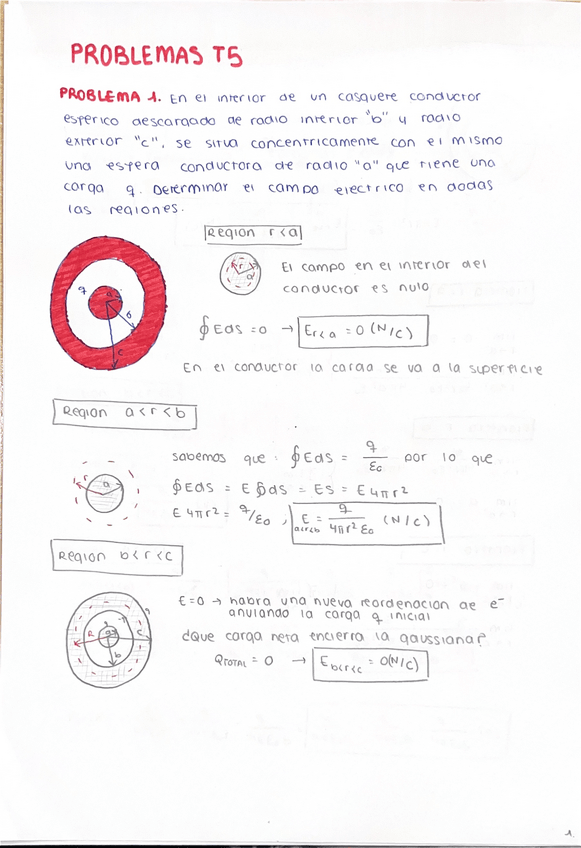 PROBLEMAS T5
PROBLEMA 1. En el interior de un casquete conductor
esferico descargado de radio interior "b" y radio
exterior "c", se situa concentricamente con el mismo
una esfera conductora de radio "a" que tiene una
carga q. Determinar el campo electrico en dodas
las regiones.
Region r<a
El campo en el interior del
conductor es nulo
∮Eds=0 → Er<a = 0 (N/C)
En el conductor la carga se va a la superficie
q
a
b
c
r
a
Region a<r<b
sabemos que: ∮EdS = q/ε₀ por lo que
∮EdS = E∮dS = ES = E4πr²
E4πr² = q/ε₀ ; E a<r<b = q/4πr²ε₀ (N/C)
r
a
Region b<r<c
E=0 → habra una nueva reordenacion de e⁻
anulando la carga q inicial
¿Que carga neta encierra la gaussiana?
QTOTAL = 0 → Eb<r<c = 0(N/C)
R
b
1.